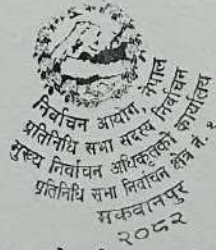 निर्वाचन आयोग, नेपाल
प्रतिनिधि सभा सदस्य निर्वाचन
मुख्य निर्वाचन अधिकृतको कार्यालय
प्रतिनिधि सभा निर्वाचन क्षेत्र नं. १
मकवानपुर
२०८२